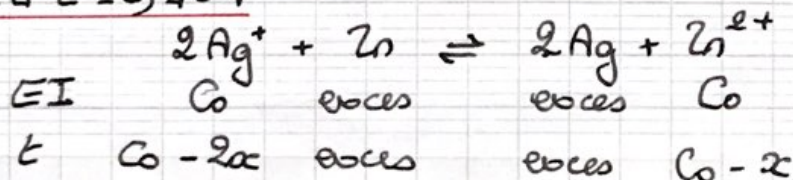 2Ag⁺ + Zn ⇌ 2Ag + Zn²⁺
EI C₀ exces exces C₀
t C₀ - 2x exces exces C₀ - x